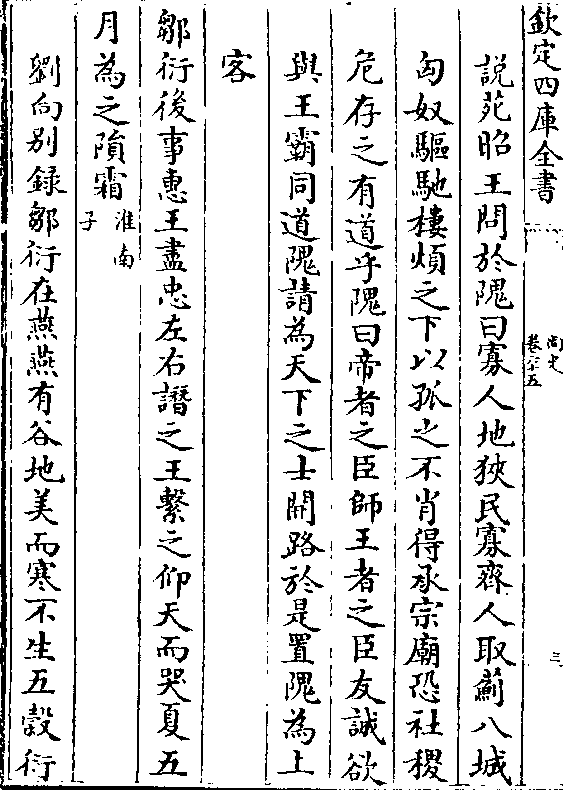 欽定四庫全書
尚史
卷六十五
三
說苑昭王問於隗曰寡人地狹民寡齊人取薊八城
匈奴驅馳樓煩之下以孤之不肖得承宗廟恐社稷
危存之有道乎隗曰帝者之臣師王者之臣友誠欲
與王霸同道隗請為天下之士開路於是置隗為上
客
鄒衍後事惠王盡忠左右譖之王繫之仰天而哭夏五
月為之隕霜淮南子
劉向别録鄒衍在燕燕有谷地美而寒不生五穀衍